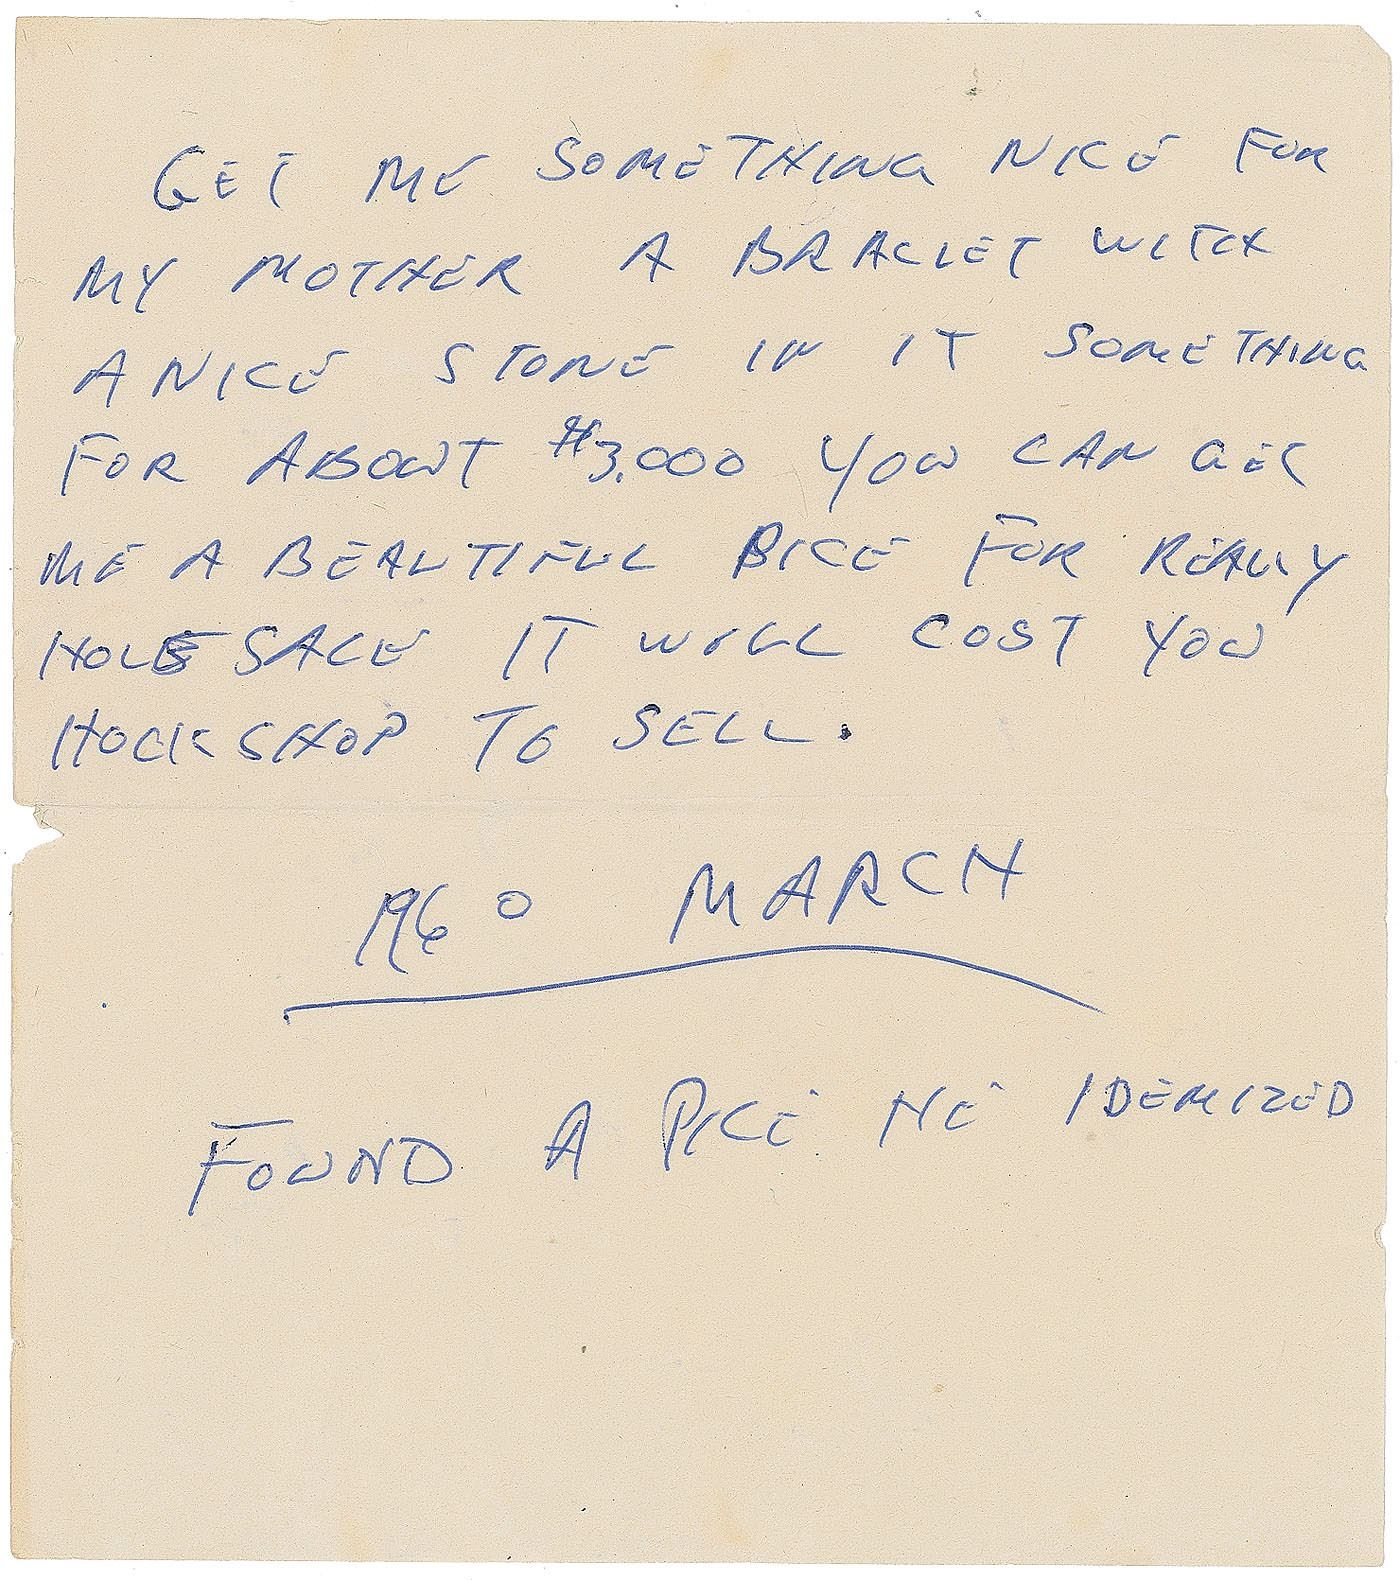 GET ME SOMETHING NICE FOR
MY MOTHER A BRACLET WITH
A NICE STONE IN IT SOMETHING
FOR ABOUT $3,000 YOU CAN GET
ME A BEAUTIFUL PICE FOR REALLY
HOLESALE IT WILL COST YOU
HOCKSHOP TO SELL.
1960 MARCH
FOUND A PICE HE IDEMIZED